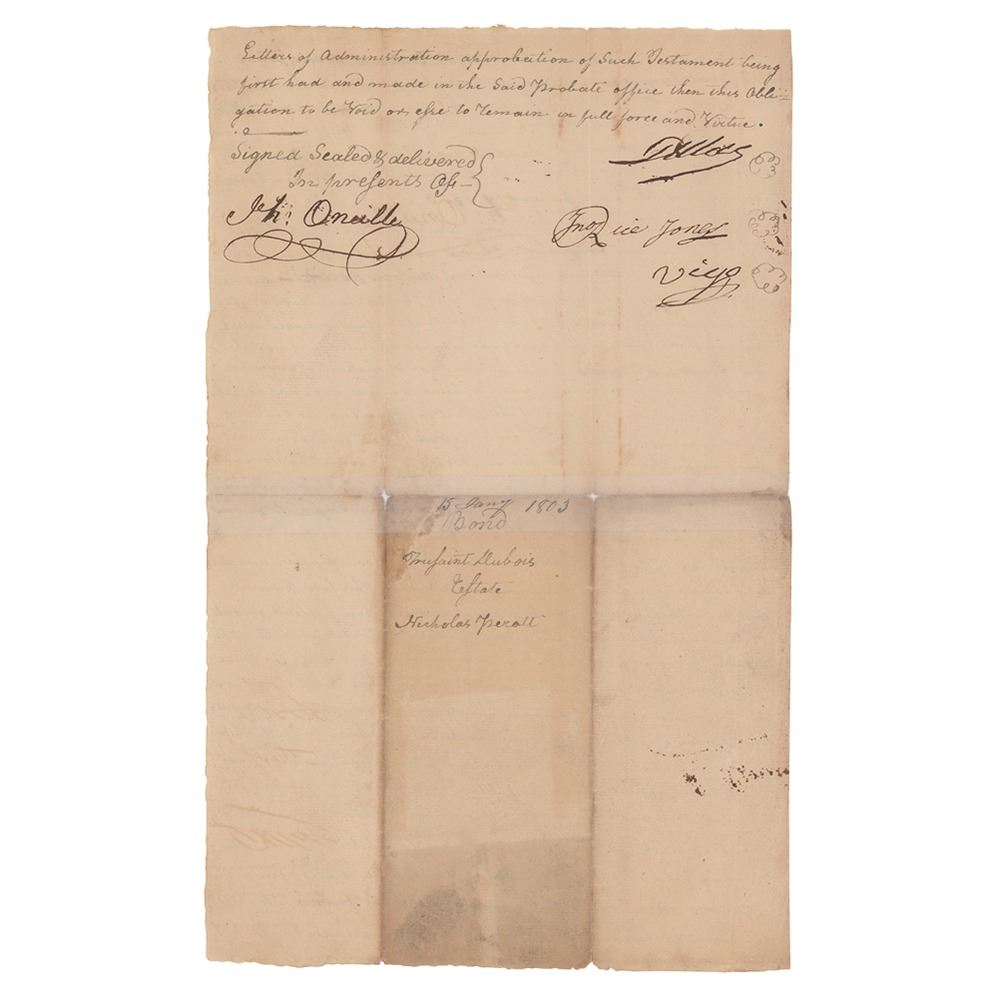 Letters of Administration approbation of Such Testament being
first had and made in the Said Probate office then this Obli=
gation to be Void or else to Remain in full force and Virtue.
Signed Sealed & delivered
In presents Of —
Jno Rice Jones
Jh: Oneille
Vigo
15 Jany 1803
Bond
Tousaint Dubois
Estate
Nicholas Perott